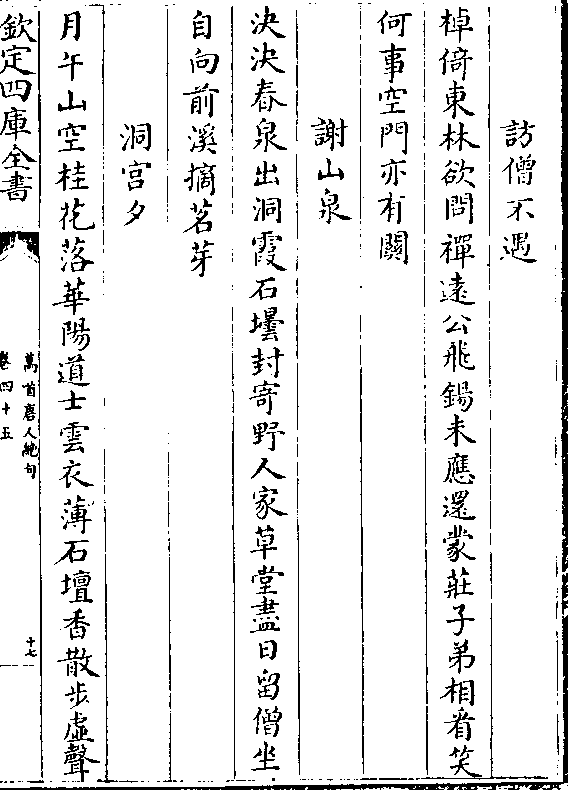 訪僧不遇
棹倚東林欲問禪遠公飛錫未應還蒙莊子弟相看笑
何事空門亦有關
謝山泉
決決春泉出洞霞石壜封寄野人家草堂盡日留僧坐
自向前溪摘茗芽
洞宫夕
月午山空桂花落華陽道士雲衣薄石壇香散步虛聲
欽定四庫全書
萬首唐人絶句
卷四十五
十七